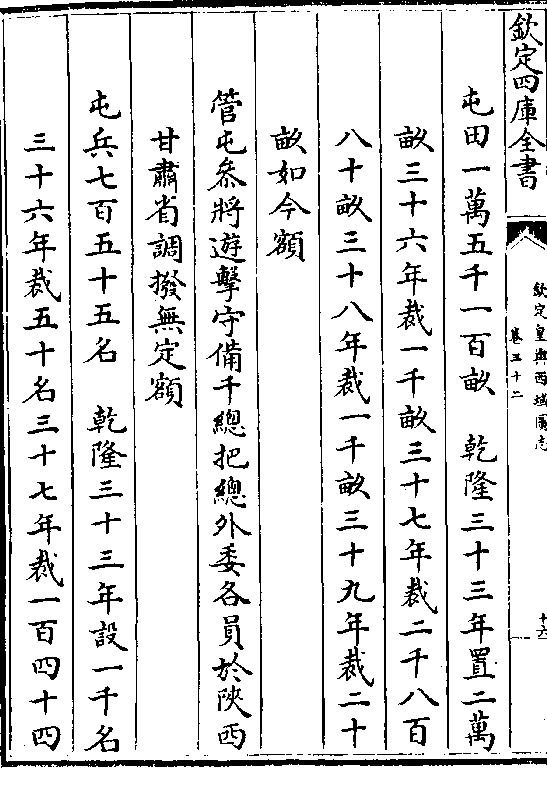 欽定四庫全書
欽定皇輿西域圖志
卷三十二
十六
屯田一萬五千一百畝　乾隆三十三年置二萬
畝三十六年裁一千畝三十七年裁二千八百
八十畝三十八年裁一千畝三十九年裁二十
畝如今額
管屯叅將遊擊守備千總把總外委各員於陝西
甘肅省調撥無定額
屯兵七百五十五名　乾隆三十三年設一千名
三十六年裁五十名三十七年裁一百四十四